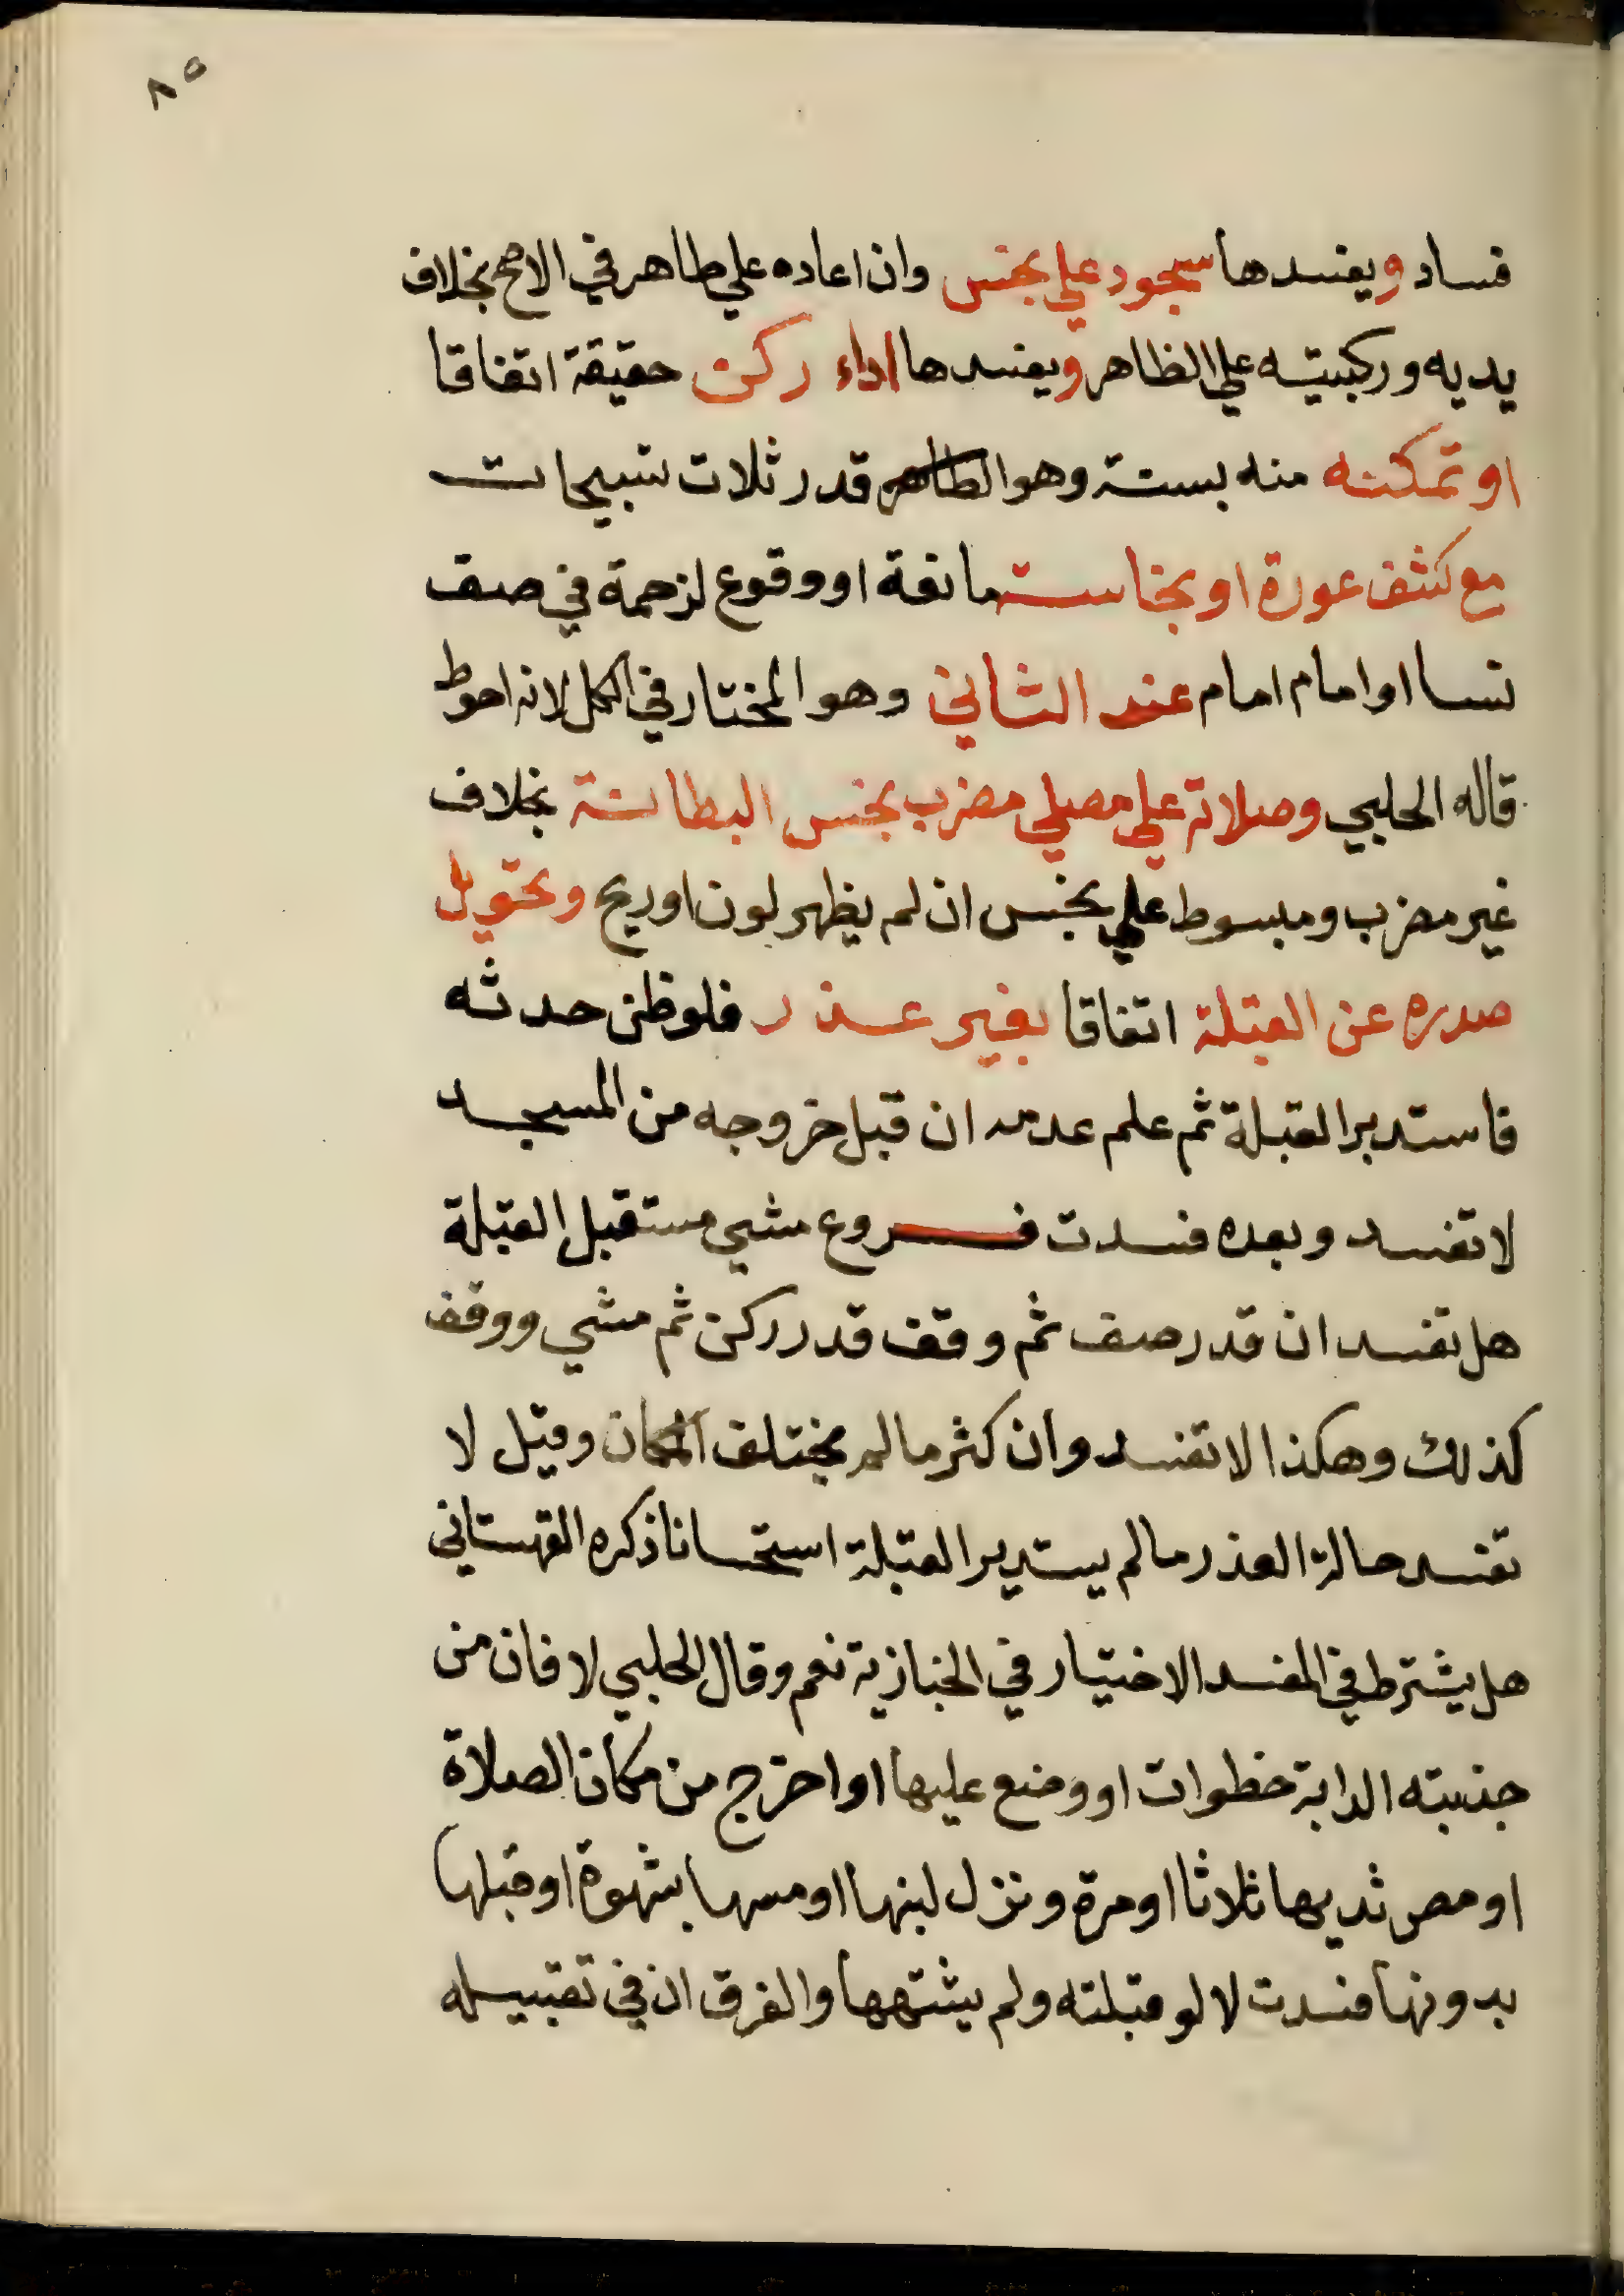 ٨٥
فساد ويفسدها سجود علي نجس وان اعاده علي طاهر في الاصح بخلاف
يديه وركبتيه علي الظاهر ويفسدها اداء ركن حقيقة اتفاقا
او تمكنه منه بسنة وهو قدر ثلاث تسبيحات
مع كشف عورة او نجاسة مانعة او وقوع لزحمة في صف
نسا او امام امام عند الثاني وهو المختار في الكل لانه احوط
قاله الحلبي وصلاته علي مصلي مضرب نجس البطانة بخلاف
غير مضرب ومبسوط علي نجس ان لم يظهر لون او ريح وتحويل
صدره عن القبلة اتفاقا بغير عذر فلو ظن حدثه
فاستدبر القبلة ثم علم عدمه ان قبل خروجه من المسجد
لا تفسد وبعده فسدت فروع مشي مستقبل القبلة
هل تفسد ان قدر صف ثم وقف قدر ركن ثم مشي ووقف
كذلك وهكذا لا تفسد وان كثر ما لم يختلف المكان وقيل لا
تفسد حالة العذر ما لم يستدبر القبلة استحسانا ذكره القهستاني
هل يشترط في المفسد الاختيار في الخبازية نعم وقال الحلبي لا فان من
جذبته الدابة خطوات او وضع عليها او اخرج من مكان الصلاة
او مص ثديها ثلاثا او مرة ونزل لبنها او مسها بشهوة او قبلها
بدونها فسدت لا لو قبلته ولم يشتهها والفرق ان في تقبيله